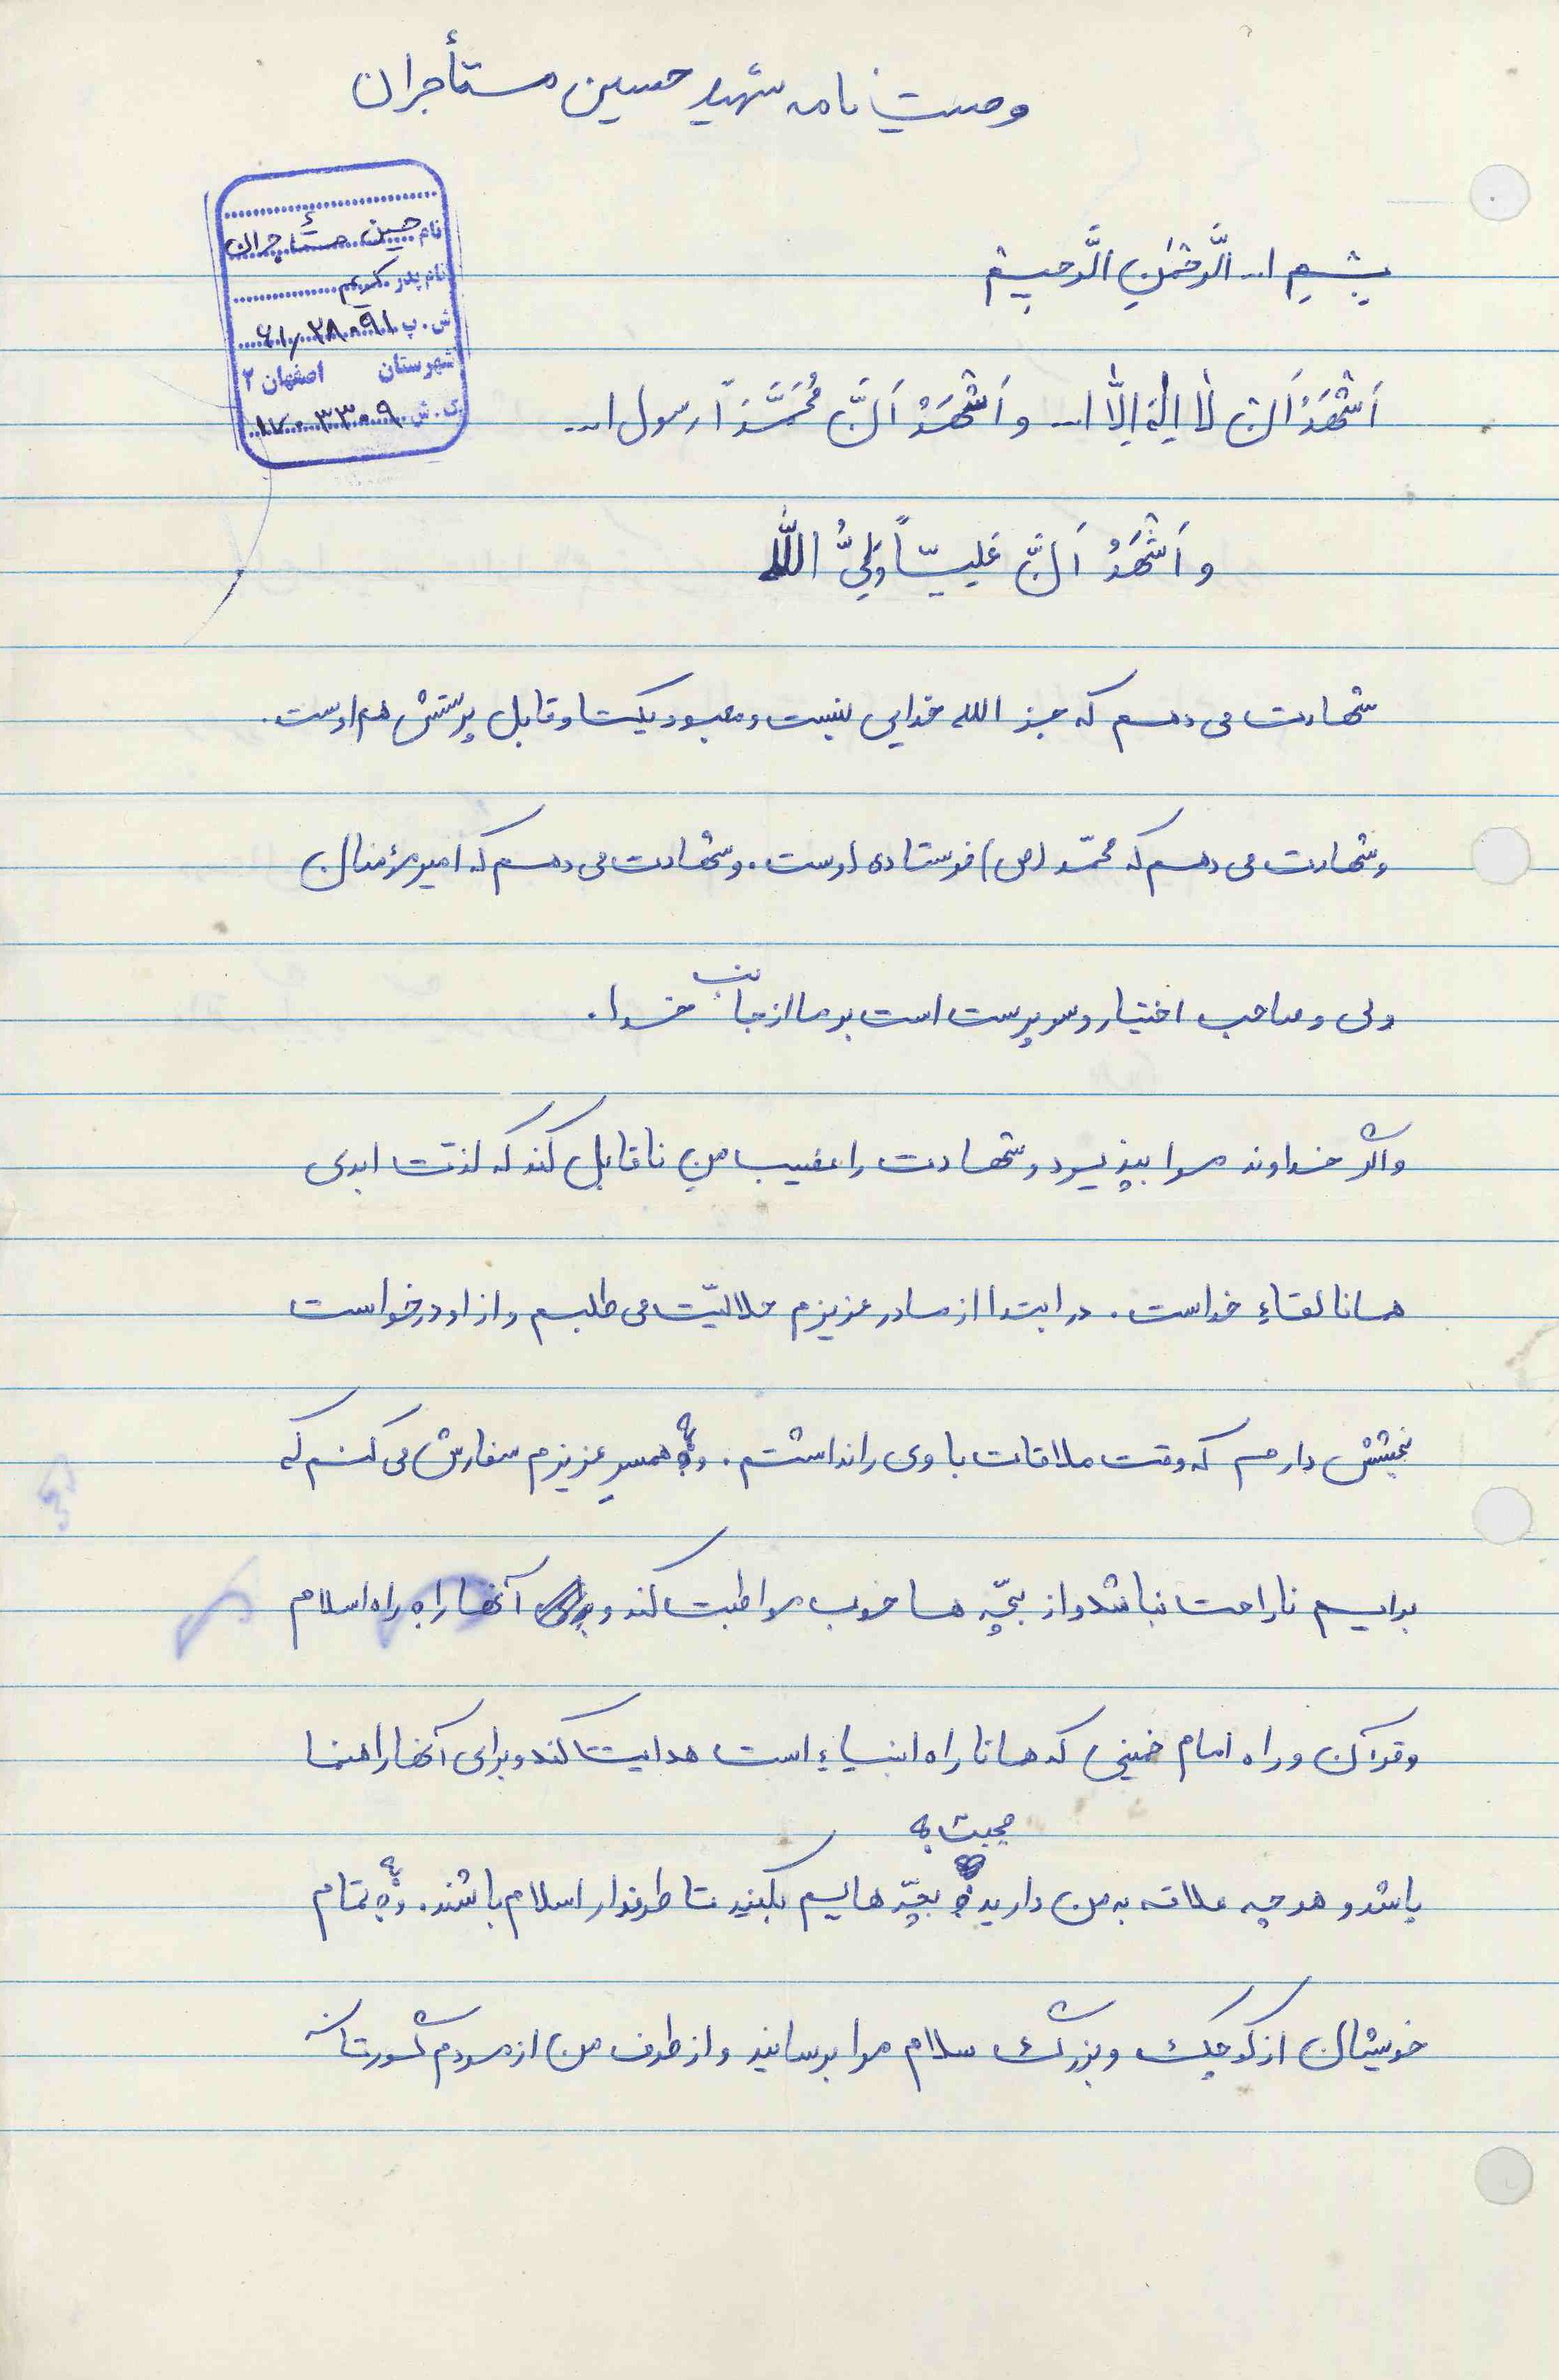 وصیت نامه شهید حسین مستأجران
نام حسین مستأجران
نام پدر کریم
ش.پ ۶۱/۲۸۰۹۱
شهرستان اصفهان ۲
ک.ش ۱۷۰۳۳۰۹
بِسْمِ ا... الَّرحْمٰنِ الَّرحیمْ
اَشْهَدُ اَنْ لٰا اِلٰهَ اِلّٰا ا... و اَشْهَدُ اَنَّ مُحَمَّدَاً رسول ا...
و اَشْهَدُ اَنَّ عَلیّاً وَلِیُّ اللّٰه
شهادت می دهم که جز الله خدایی نیست و معبود یکتا و قابل پرستش هم اوست.
و شهادت می دهم که محمّد (ص) فرستاده اوست. و شهادت می دهم که امیرمؤمنان
ولی و صاحب اختیار و سرپرست است بر ما از جانب خدا.
و اگر خداوند مرا بپذیرد و شهادت را نصیب من ناقابل کند که لذت ابدی
همانا لقاءِ خداست. در ابتدا از مادر عزیزم حلالیّت می طلبم و از او درخواست
بخشش دارم که وقت ملاقات با وی را نداشتم. و به همسرِ عزیزم سفارش می کنم که
برایم ناراحت نباشد و از بچّه ها خوب مواظبت کند و آنها را به راه اسلام
و قرآن و راه امام خمینی که همانا راه انبیاءِ است هدایت کند و برای آنها راهنما
باشد و هر چه علاقه به من دارید محبت به بچّه هایم بکنید تا طرفدار اسلام باشند. و به تمام
خویشان از کوچک و بزرگ سلام مرا برسانید و از طرف من از مردم کشورتان